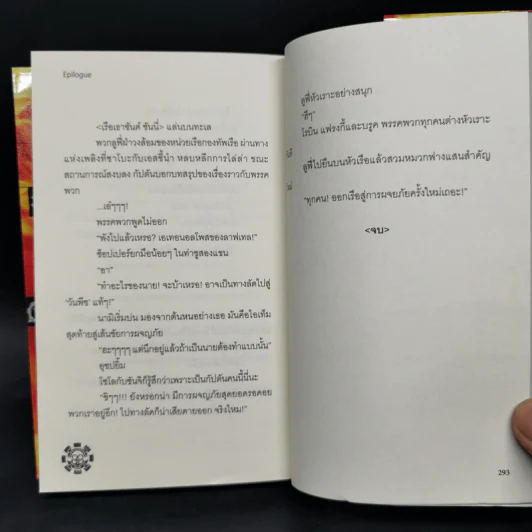 Epilogue
<เรือเธาซันด์ ซันนี่> แล่นบนทะเล
พวกลูฟี่ฝ่าวงล้อมของหน่วยเรือกองทัพเรือ ผ่านทาง
แห่งเพลิงที่ซาโบะกับเอสชี้นำ หลบหลีกการไล่ล่า ขณะ
สถานการณ์สงบลง กัปตันบอกบทสรุปของเรื่องราวกับพรรค
พวก
...เอ๋ๆๆๆ!
พรรคพวกพูดไม่ออก
"พังไปแล้วเหรอ? เอเทอนอลโพสของลาฟเทล!"
ช็อปเปอร์ยกมือน้อยๆ ในท่าชูสองแขน
"อา"
"ทำอะไรของนาย! จะบ้าเหรอ! อาจเป็นทางลัดไปสู่
'วันพีซ' แท้ๆ!"
นามิเริ่มบ่น มองจากต้นหนอย่างเธอ มันคือไอเท็ม
สุดท้ายสู่เส้นชัยการผจญภัย
"ฮะๆๆๆๆ แต่นึกอยู่แล้วถ้าเป็นนายต้องทำแบบนั้น"
อุซปยิ้ม
โซโลกับซันจิก็รู้สึกว่าเพราะเป็นกัปตันคนนี้นี่นะ
"ชิๆๆ!!! ยังหรอกน่า มีการผจญภัยสุดยอดรอคอย
พวกเราอยู่อีก! ไปทางลัดก็น่าเสียดายออก จริงไหม!"
ลูฟี่หัวเราะอย่างสนุก
"ฮี่ๆ"
โรบิน แฟรงกี้และบรูค พรรคพวกทุกคนต่างหัวเราะ
ลูฟี่ไปยืนบนหัวเรือแล้วสวมหมวกฟางแสนสำคัญ
"ทุกคน! ออกเรือสู่การผจญภัยครั้งใหม่เถอะ!"
<จบ>
293